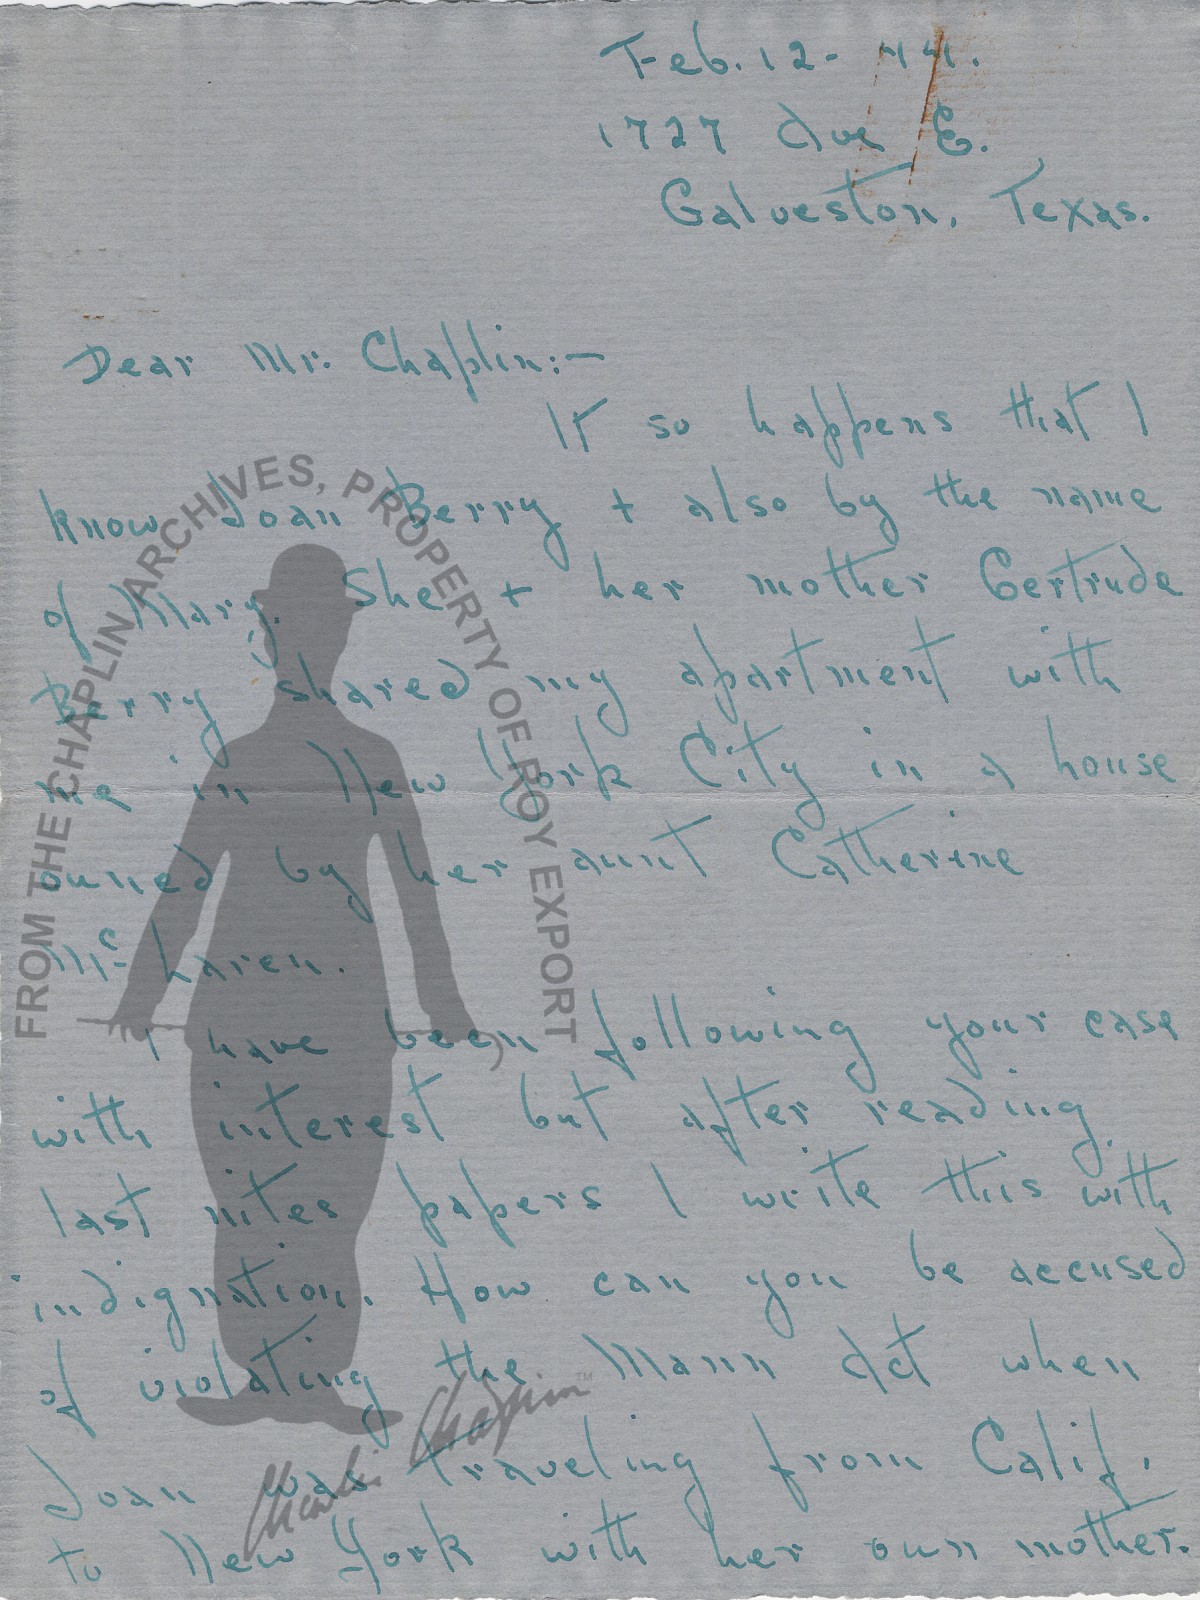 Feb. 12 - 44.
1727 Ave E.
Galveston, Texas.
Dear Mr. Chaplin:—
It so happens that I
know Joan Berry + also by the name
of Mary. She + her mother Gertrude
Berry shared my apartment with
me in New York City in a house
owned by her aunt Catherine
McLaren.
I have been following your case
with interest but after reading
last nites papers I write this with
indignation. How can you be accused
of violating the Mann Act when
Joan was traveling from Calif.
to New York with her own mother.
FROM THE CHAPLIN ARCHIVES, PROPERTY OF ROY EXPORT
Charlie Chaplin™